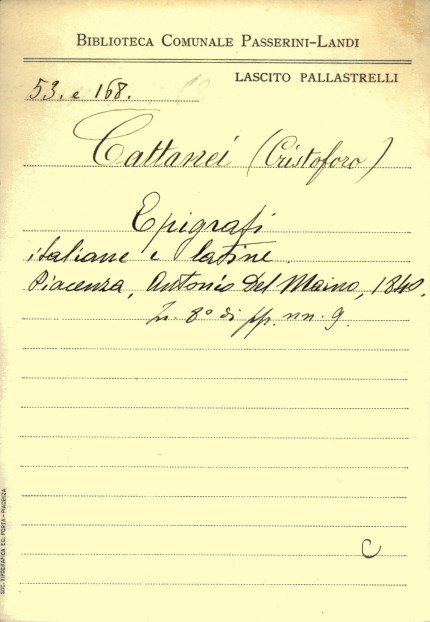 BIBLIOTECA COMUNALE PASSERINI-LANDI
LASCITO PALLASTRELLI
53. e 168.
Cattanei (Cristoforo)
Epigrafi
italiane e latine.
Piacenza, Antonio Del Maino, 1840.
In. 8° di pp. nn. 9.
C
SOC. TIPOGRAFICA ED. PORTA - PIACENZA